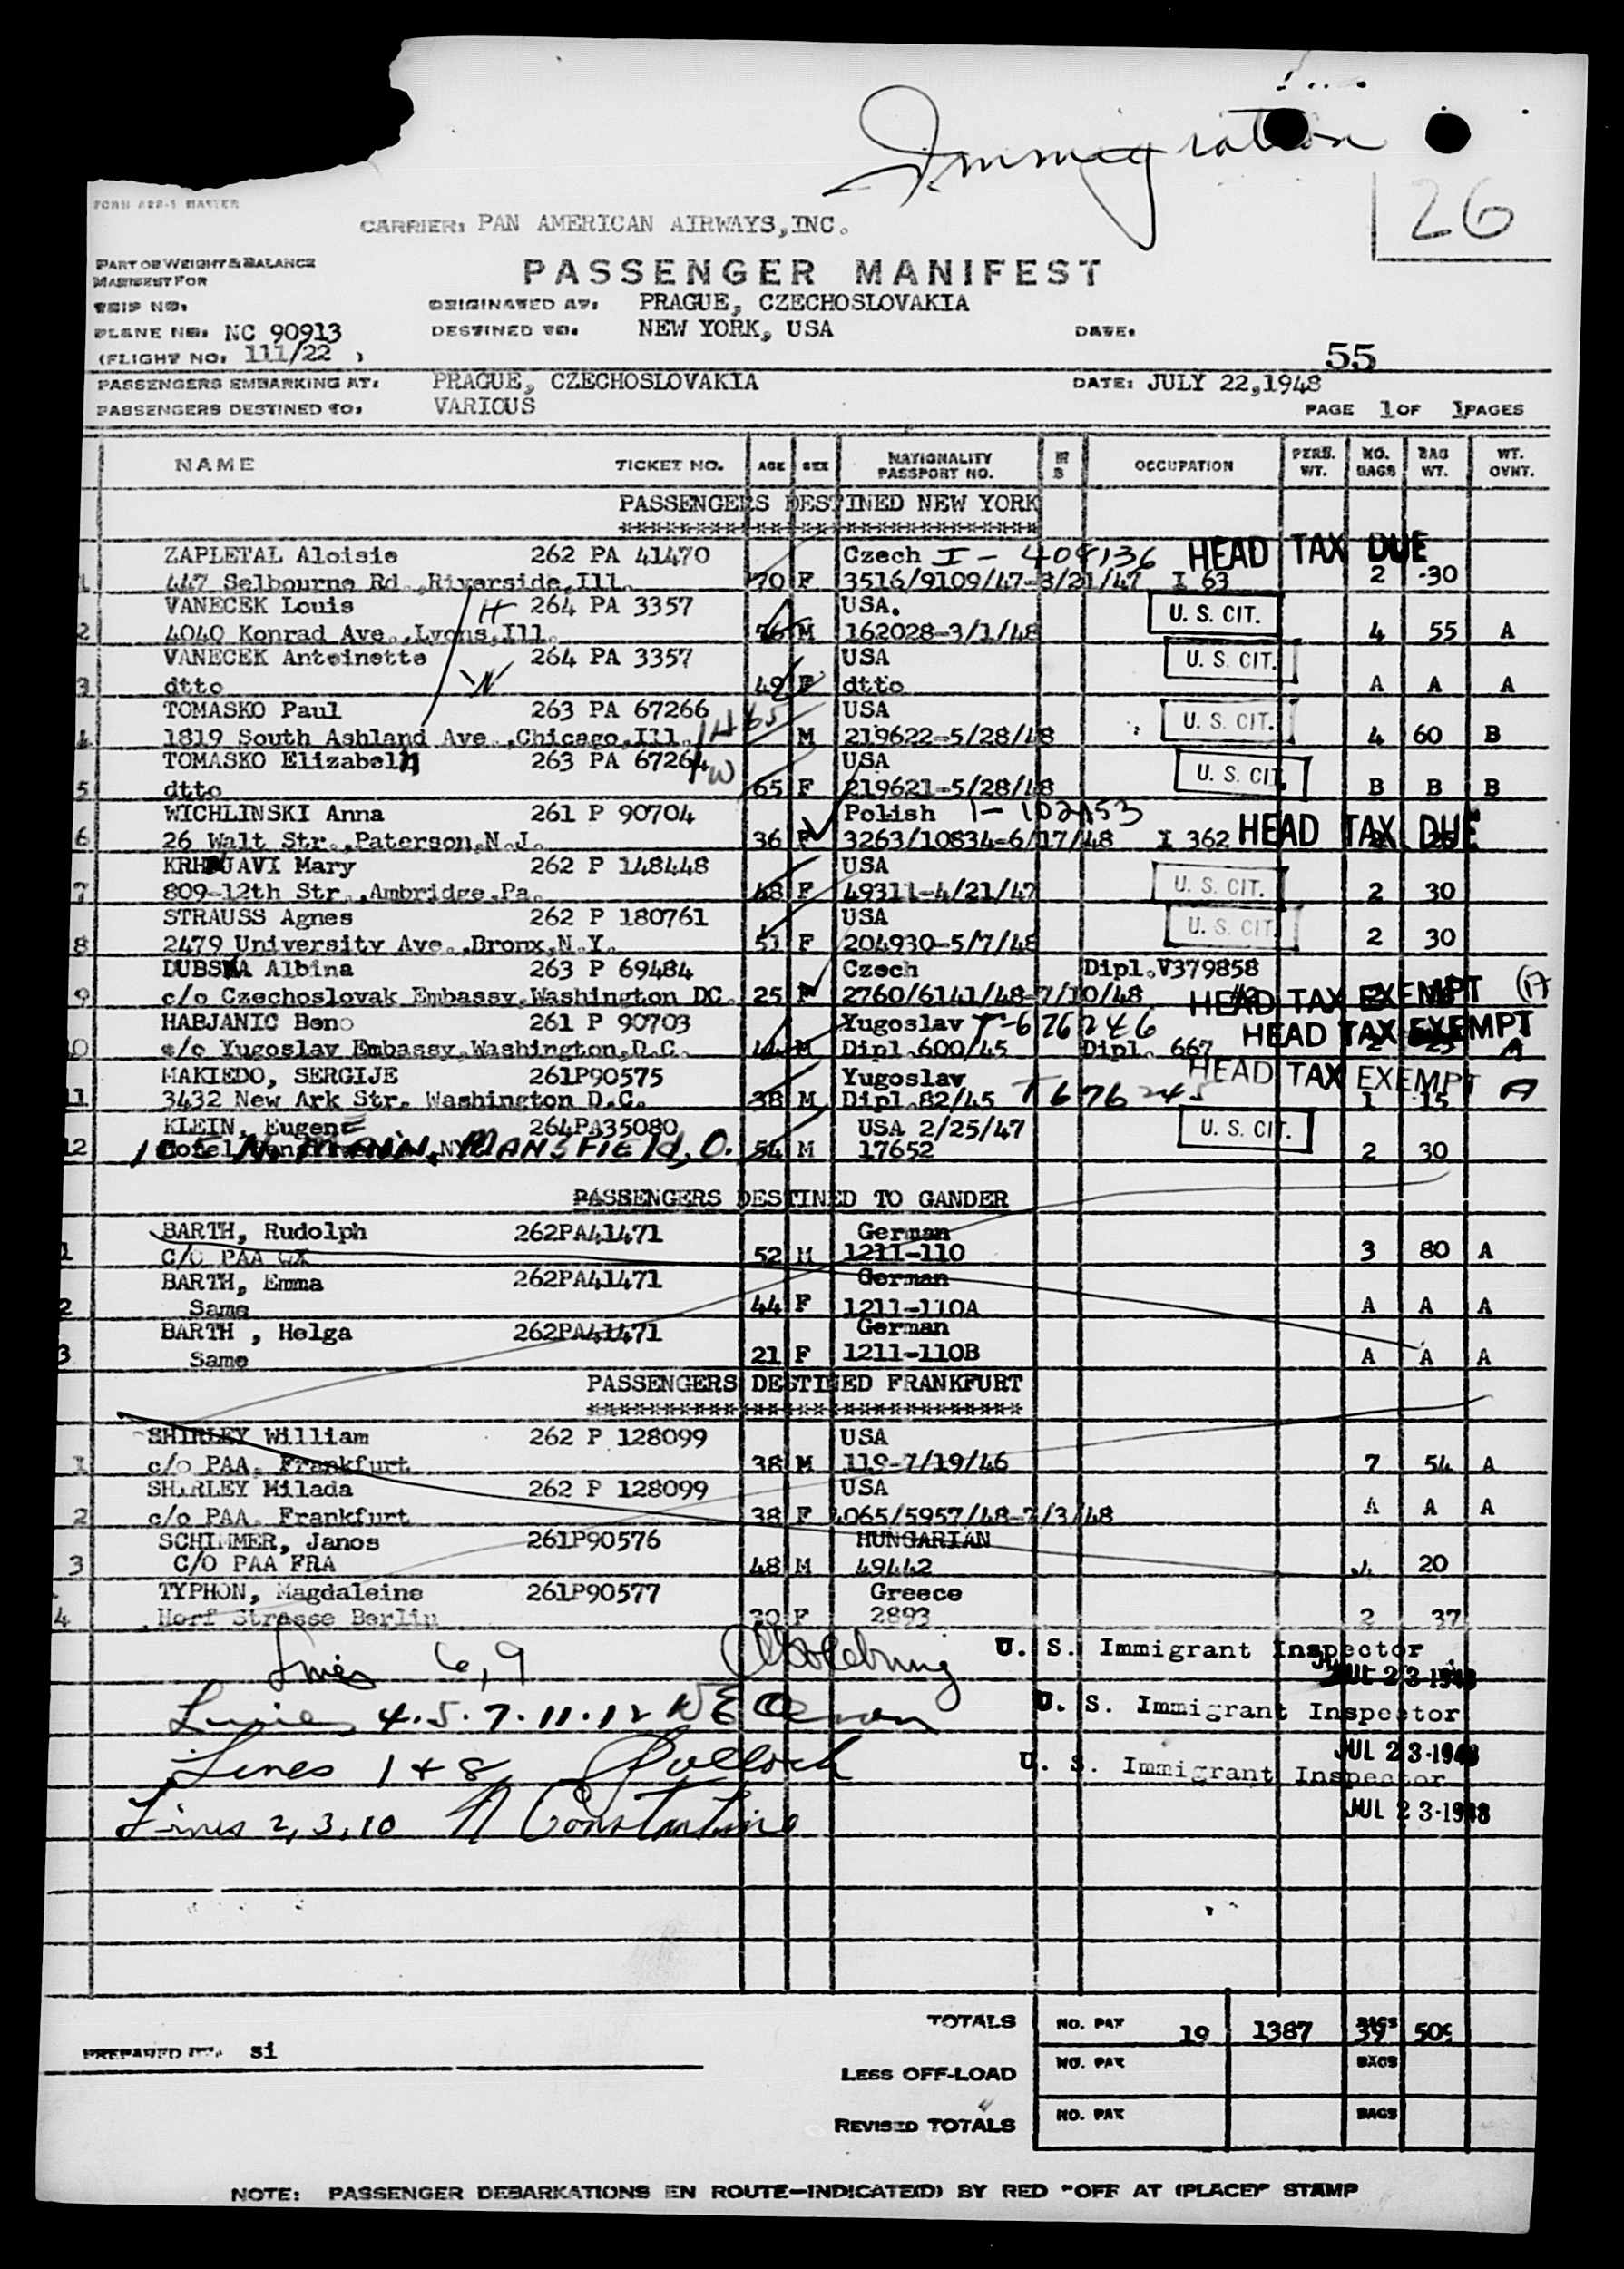 Immigration
26
FORM ARR-1 MASTER
CARRIER: PAN AMERICAN AIRWAYS, INC.
PART OF WEIGHT & BALANCE
MANIFEST FOR
PASSENGER MANIFEST
TRIP NO:
ORIGINATED AT: PRAGUE, CZECHOSLOVAKIA
PLANE NO: NC 90913
DESTINED TO: NEW YORK, USA
DATE:
(FLIGHT NO: 111/22 )
55
PASSENGERS EMBARKING AT: PRAGUE, CZECHOSLOVAKIA DATE: JULY 22,1948
PASSENGERS DESTINED TO: VARIOUS PAGE 1 OF 1 PAGES
NAME TICKET NO. AGE SEX NATIONALITY PASSPORT NO. OCCUPATION PERS. WT. NO. BAGS BAG WT. WT. OVHT.
PASSENGERS DESTINED NEW YORK
ZAPLETAL Aloisie 262 PA 41470 Czech I - 408136 HEAD TAX DUE
1 447 Selbourne Rd.,Riverside,Ill. 70 F 3516/9109/47-3/21/47 I 63 2 -30
VANECEK Louis H 264 PA 3357 USA. U. S. CIT.
2 4040 Konrad Ave.,Lyons,Ill. M 162028-3/1/48 4 55 A
VANECEK Antoinette 264 PA 3357 USA U. S. CIT.
3 dtto W 49 F dtto A A A
TOMASKO Paul 263 PA 67266 USA U. S. CIT.
4 1819 South Ashland Ave.,Chicago,Ill. H 65 M 219622-5/28/48 4 60 B
TOMASKO Elizabeth 263 PA 67264 USA U. S. CIT.
5 dtto W 65 F 219621-5/28/48 B B B
WICHLINSKI Anna 261 P 90704 Polish HEAD TAX DUE
6 26 Walt Str.,Paterson,N.J. 36 F 3263/10834-6/17/48 I 362
KRHNJAVI Mary 262 P 148448 USA U. S. CIT.
7 809-12th Str.,Ambridge,Pa. 48 F 49311-4/21/47 2 30
STRAUSS Agnes 262 P 180761 USA U. S. CIT.
8 2479 University Ave.,Bronx,N.Y. F 204930-5/7/48 2 30
DUBSKA Albina 263 P 69484 Czech Dipl.V379858
9 c/o Czechoslovak Embassy,Washington DC. 25 F 2760/6141/48-7/10/48 HEAD TAX EXEMPT
HABJANIC Beno 261 P 90703 Yugoslav T-676246 HEAD TAX EXEMPT
10 c/o Yugoslav Embassy,Washington,D.C. M Dipl.600/45 Dipl. 667 A
MAKIEDO, SERGIJE 261P90575 Yugoslav HEAD TAX EXEMPT A
11 3432 New Ark Str. Washington D.C. 38 M Dipl.82/45 T676245 1 15
KLEIN, Eugene 264PA35080 USA 2/25/47 U. S. CIT.
12 MAIN, MANSFIELD, O. 54 M 17652 2 30
PASSENGERS DESTINED TO GANDER
BARTH, Rudolph 262PA41471 German
1 C/O PAA QX 52 M 1211-110 3 80 A
BARTH, Emma 262PA41471 German
2 Same 44 F 1211-110A A A A
BARTH , Helga 262PA41471 German
3 Same 21 F 1211-110B A A A
PASSENGERS DESTINED FRANKFURT
SHIRLEY William 262 P 128099 USA
1 c/o PAA. Frankfurt 38 M 119-7/19/46 7 54 A
SHIRLEY Milada 262 P 128099 USA
2 c/o PAA. Frankfurt 38 F 4065/5957/48-7/3/48 A A A
SCHIMMER, Janos 261P90576 HUNGARIAN
3 C/O PAA FRA 48 M 49442 20
TYPHON, Magdaleine 261P90577 Greece
4 Horf Strasse Berlin 30 F 2893 2 37
Lines 6,9 U. S. Immigrant Inspector
JUL 23 1948
Lines 4.5.7.11.12 U. S. Immigrant Inspector
JUL 23 1948
Lines 1 + 8 Pollock U. S. Immigrant Inspector
JUL 23 1948
Lines 2,3,10 N Constantine
TOTALS NO. PAX 19 1387 BAGS 39 509
PREPARED BY: si
LESS OFF-LOAD NO. PAX BAGS
REVISED TOTALS NO. PAX BAGS
NOTE: PASSENGER DEBARKATIONS EN ROUTE—INDICATE(D) BY RED "OFF AT (PLACE)" STAMP